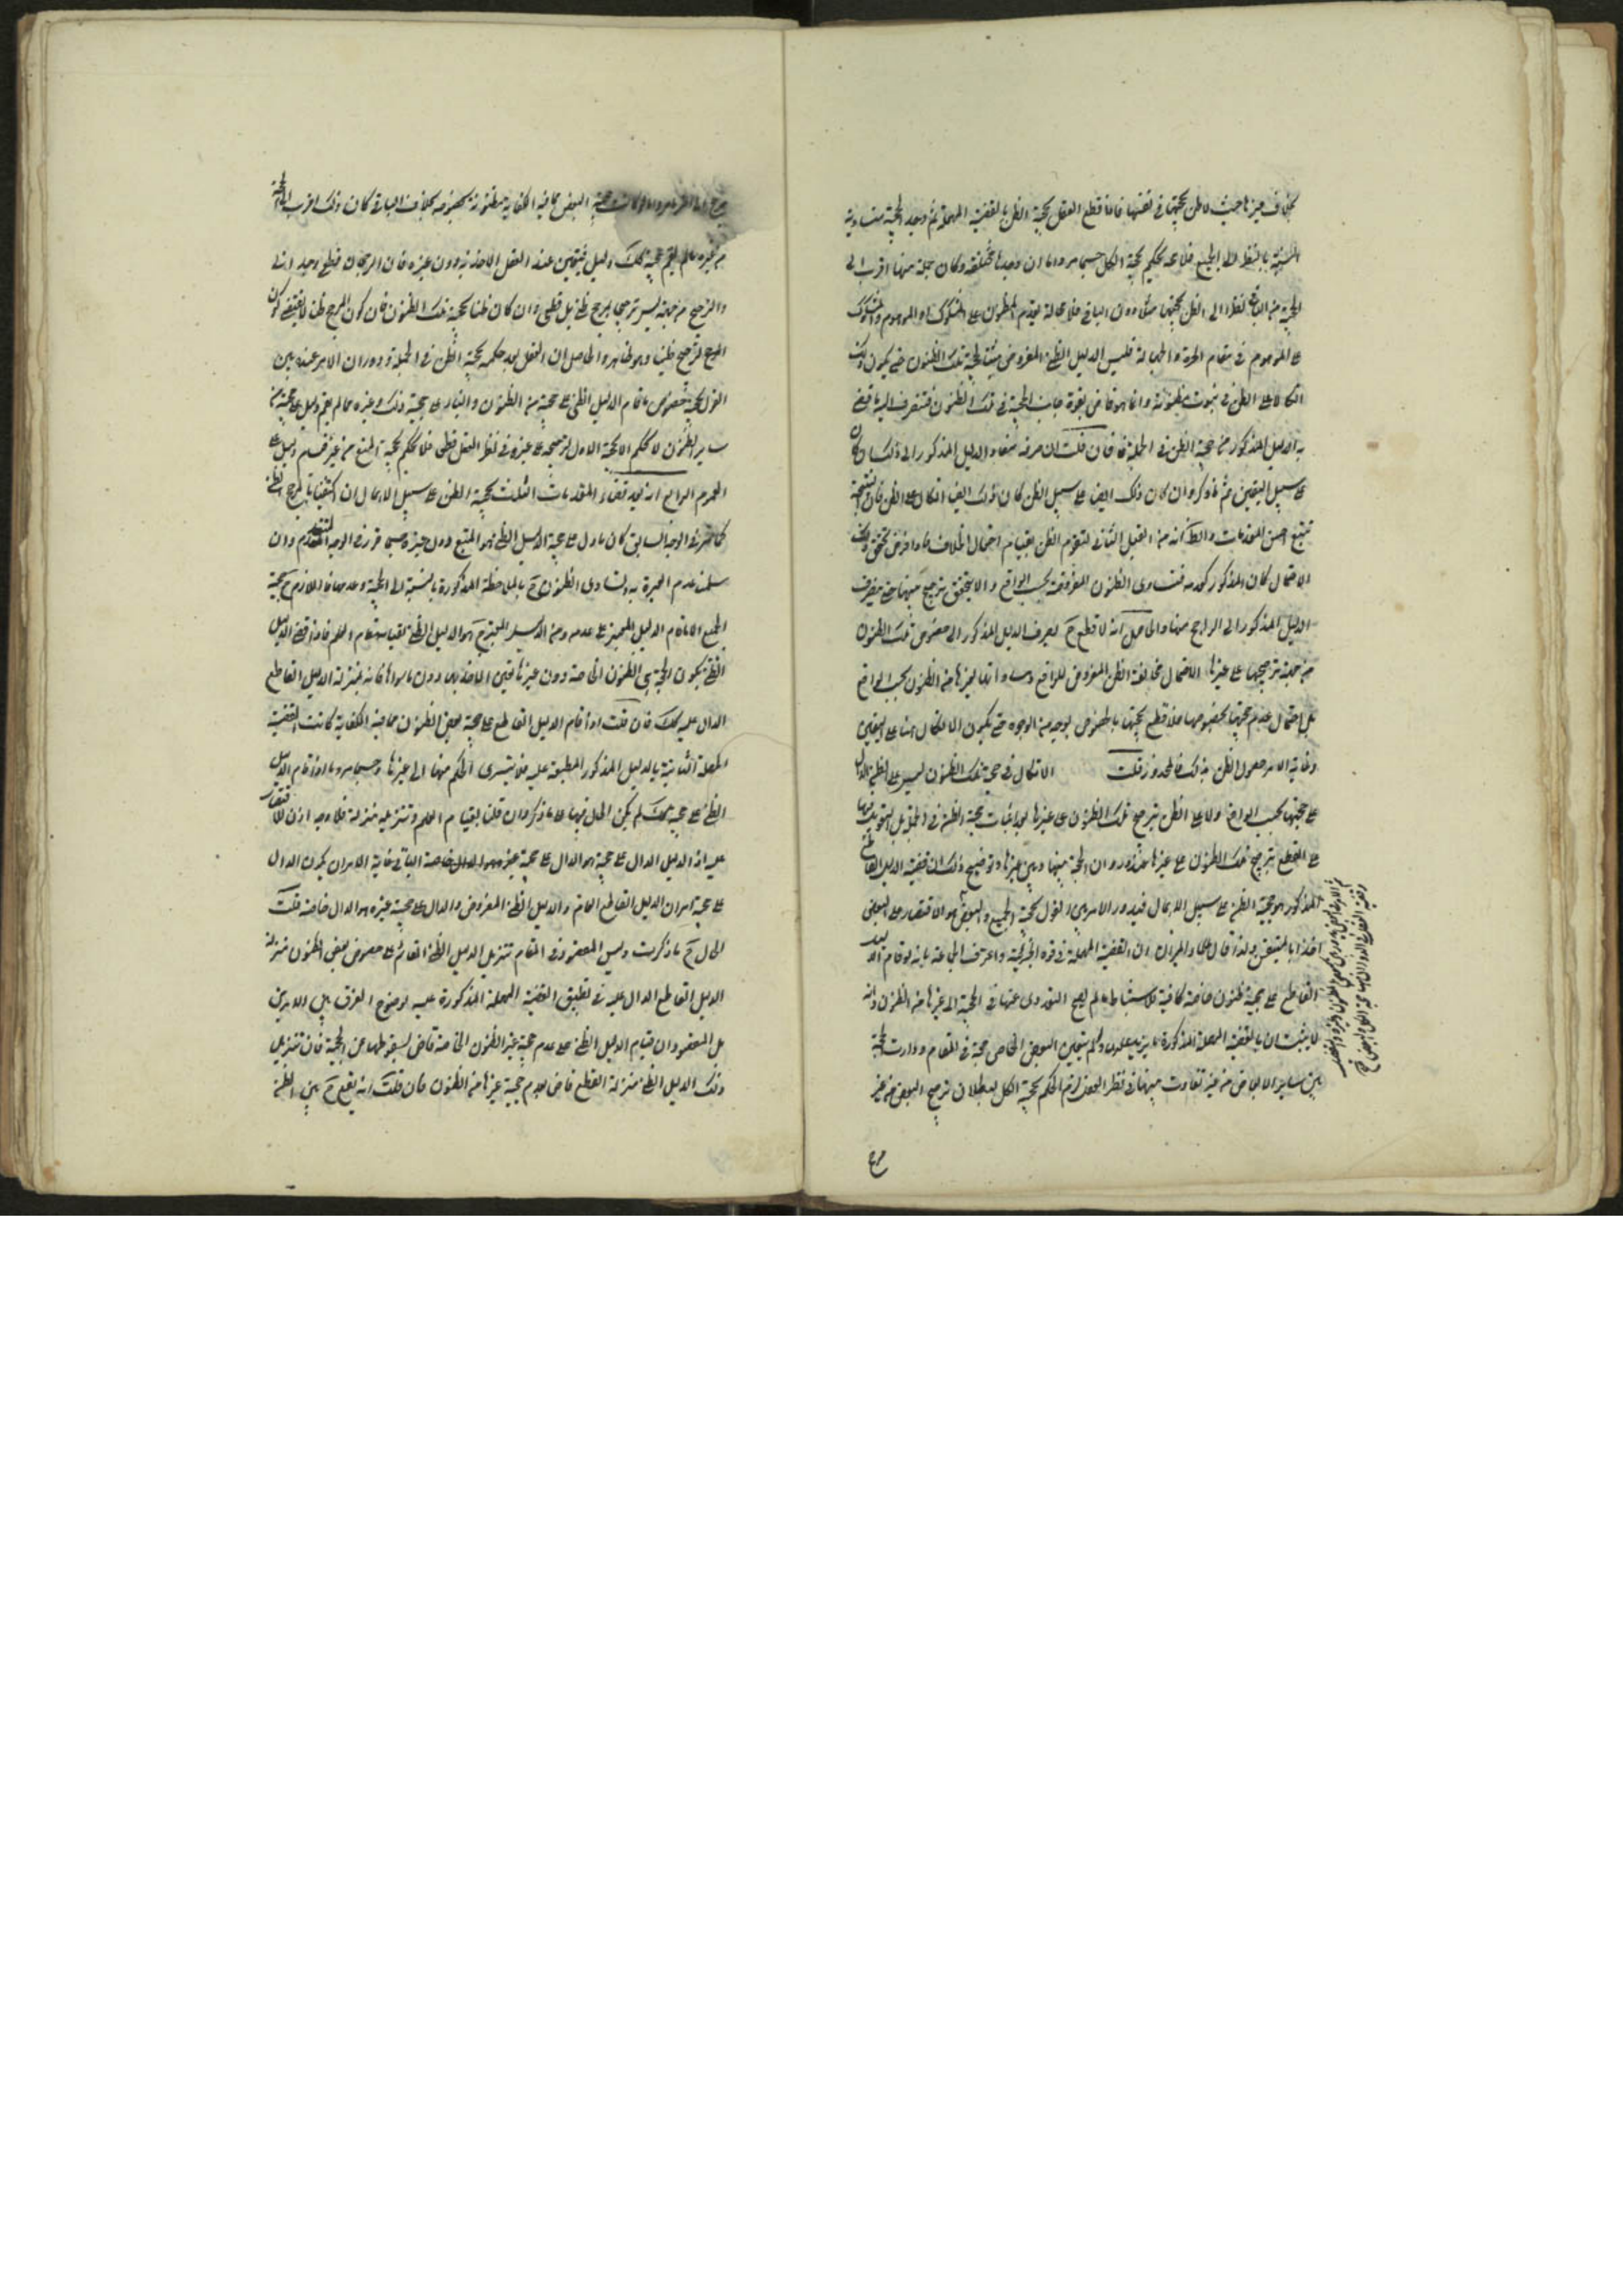 بخلاف غيرها حيث لا ظن بحجيتها في نفسها فاذا قطع العقل بحجية الظن بالقضية المهملة ثم وجد الحجية متساوية
النسبة بالنظر الى الجميع فلا محة يحكم بحجية الكل حسبما مر واما ان وجدها مختلفة وكان جملة منها اقرب الى
الحجية من الباقي نظرا الى الظن بحجيتها مثلا دون الباقي فلا محالة يقدم المظنون على المشكوك او الموهوم والمشكوك
على الموهوم في مقام الحيرة والجهالة فليس الدليل الظني المفروض مثبتا لحجية تلك الظنون حتى يكون ذلك
اتكالا على الظن في ثبوت مظنونه وانما هو قاض بقوة جانب الحجية في تلك الظنون فتصرف اليه ما قضى
به الدليل المذكور من حجية الظن في الجملة فان قلت ان صرف مفاد الدليل المذكور الى ذلك ان كان
على سبيل اليقين تم ما ذكر وان كان ذلك ايضا على سبيل الظن كان ذلك ايضا اتكالا على الظن فان النتيجة
تتبع اخس المقدمات والظ انه من القبيل الثاني لتقوم الظن بقيام احتمال الخلاف فاذا فرض تحقق ذلك
الاحتمال كان المذكور كعدمه فتساوى الظنون المفروضة بحسب الواقع والا يتحقق ترجيح بينها حتى ينصرف
الدليل المذكور الى الراجح منها والحاصل انه لا قطع ح بصرف الدليل المذكور الى خصوص تلك الظنون
من جهة ترجيحها على غيرها لاحتمال مخالفة الظن المفروض للواقع ومساواتها لغيرها من الظنون بحسب الواقع
بل احتمال عدم حجيتها بخصوصها فلا قطع بحجيتها بالخصوص بوجه من الوجوه حتى يكون الاتكال هنا على اليقين
وغاية الامر حصول الظن بذلك فالمحذور قلت الاتكال في حجية تلك الظنون ليس على الظن الدال
على حجيتها بحسب الواقع ولا على الظن بترجيح تلك الظنون على غيرها بعد اثبات حجية الظن في الجملة بل التعويل فيها
على القطع بترجيح تلك الظنون على غيرها عند دوران الحجية بينها وبين غيرها وتوضيح ذلك ان قضية الدليل القاطع
المذكور هو حجية الظن على سبيل الاهمال فيدور الامر بين القول بحجية الجميع والبعض هو الاقتصار على البعض
اخذا بالمتيقن ولذا قال علماء الميزان ان القضية المهملة في قوة الجزئية واعترف الجماعة بانه لو قام الدليل
القاطع على حجية ظنون خاصة كافية للاستنباط لم يصح التعدي عنها في الحجية الى غيرها من الظنون وانه
لا يثبت ان بالقضية المهملة المذكورة ما يزيد عليها ولم يتعين البعض الخاص بحجية في المقام ودارت الحجية
بين سائر الابعاض من غير تفاوت بينها في نظر العقل لزم الحكم بحجية الكل لبطلان ترجيح البعض من غير
مرجح
مرجح اما لو كانت حجية البعض مما فيه الكفاية مظنونة بخصوصه بخلاف الباقي كان ذلك اقرب الى الحجية
من غيره مما لم يقم على حجيته كك دليل فيتعين عند العقل الاخذ به دون غيره فان الرجحان قطعي وجداني
والترجيح من جهته ليس ترجيحا بمرجح ظني بل قطعي وان كان ظنا بحجية تلك الظنون فان كون المرجح ظنا لا يقتضي كون
الترجيح ظنيا وهو ظاهر والحاصل ان العقل بعد حكمه بحجية الظن في الجملة ودوران الامر عنده بين
القول بحجية خصوص ما قام الدليل الظني على حجيته من الظنون والبناء على حجية ذلك وغيره مما لم يقم دليل على حجيته من
سائر الظنون لا يحكم الا بحجية الاول لترجيحه على غيره في نظر العقل قطعي فلا يحكم بحجية الجميع من غير قيام دليل على
العموم الرابع انه بعد قضاء المقدمات الثلث بحجية الظن على سبيل الاهمال ان اكتفينا بالمرجح الظني
كما مر في الوجه السابق كان ما دل على حجية الدليل الظني هو المتبع دون غيره حسبما قرر في الوجه المتقدم وان
سلمنا عدم العبرة به وتساوى الظنون ح بالملاحظة المذكورة بالنسبة الى الحجية وعدمها فاللازم ح حجية
الجميع الا ما قام الدليل المعتبر على عدمه ومن الدليل المعتبر ح هو الدليل الظني لقيامه مقام العلم فاذا قضى الدليل
الظني بكون الحجة هي الظنون الخاصة دون غيرها تعين الاخذ بها دون ما سواها فانه بمنزلة الدليل القاطع
الدال عليه كك فان قلت اذا قام الدليل القاطع على حجية بعض الظنون مما فيه الكفاية كانت القضية
المهملة الثابتة بالدليل المذكور منطبقة عليه فلا يتسرى الحكم منها الى غيرها حسبما مر واما اذا قام الدليل
الظني على حجيته كك لم يكن الحال فيها كما ذكر وان قلنا بقيام الظن مقام العلم وتنزيله منزلته فلا وجه اذن للاقتصار
عليه اذ الدليل الدال على حجيته هو الدال على حجية غيره
على حجيته امران الدليل القاطع العام والدليل الظني المفروض والدال على حجية غيره هو الدال خاصة قلت
الحال ح ما ذكرت وليس المقصود في المقام تنزيل الدليل الظني القائم على خصوص بعض الظنون منزلة
الدليل القاطع الدال عليه في تطبيق القضية المهملة المذكورة عليه لوضوح الفرق بين الامرين
بل المقصود ان قيام الدليل الظني على عدم حجية غير الظنون الخاصة قاض بسقوطها عن الحجية فان تنزيل
ذلك الدليل الظني منزلة القطع قاض بعدم حجية غيرها من الظنون فان قلت انه يقع ح بين الظن